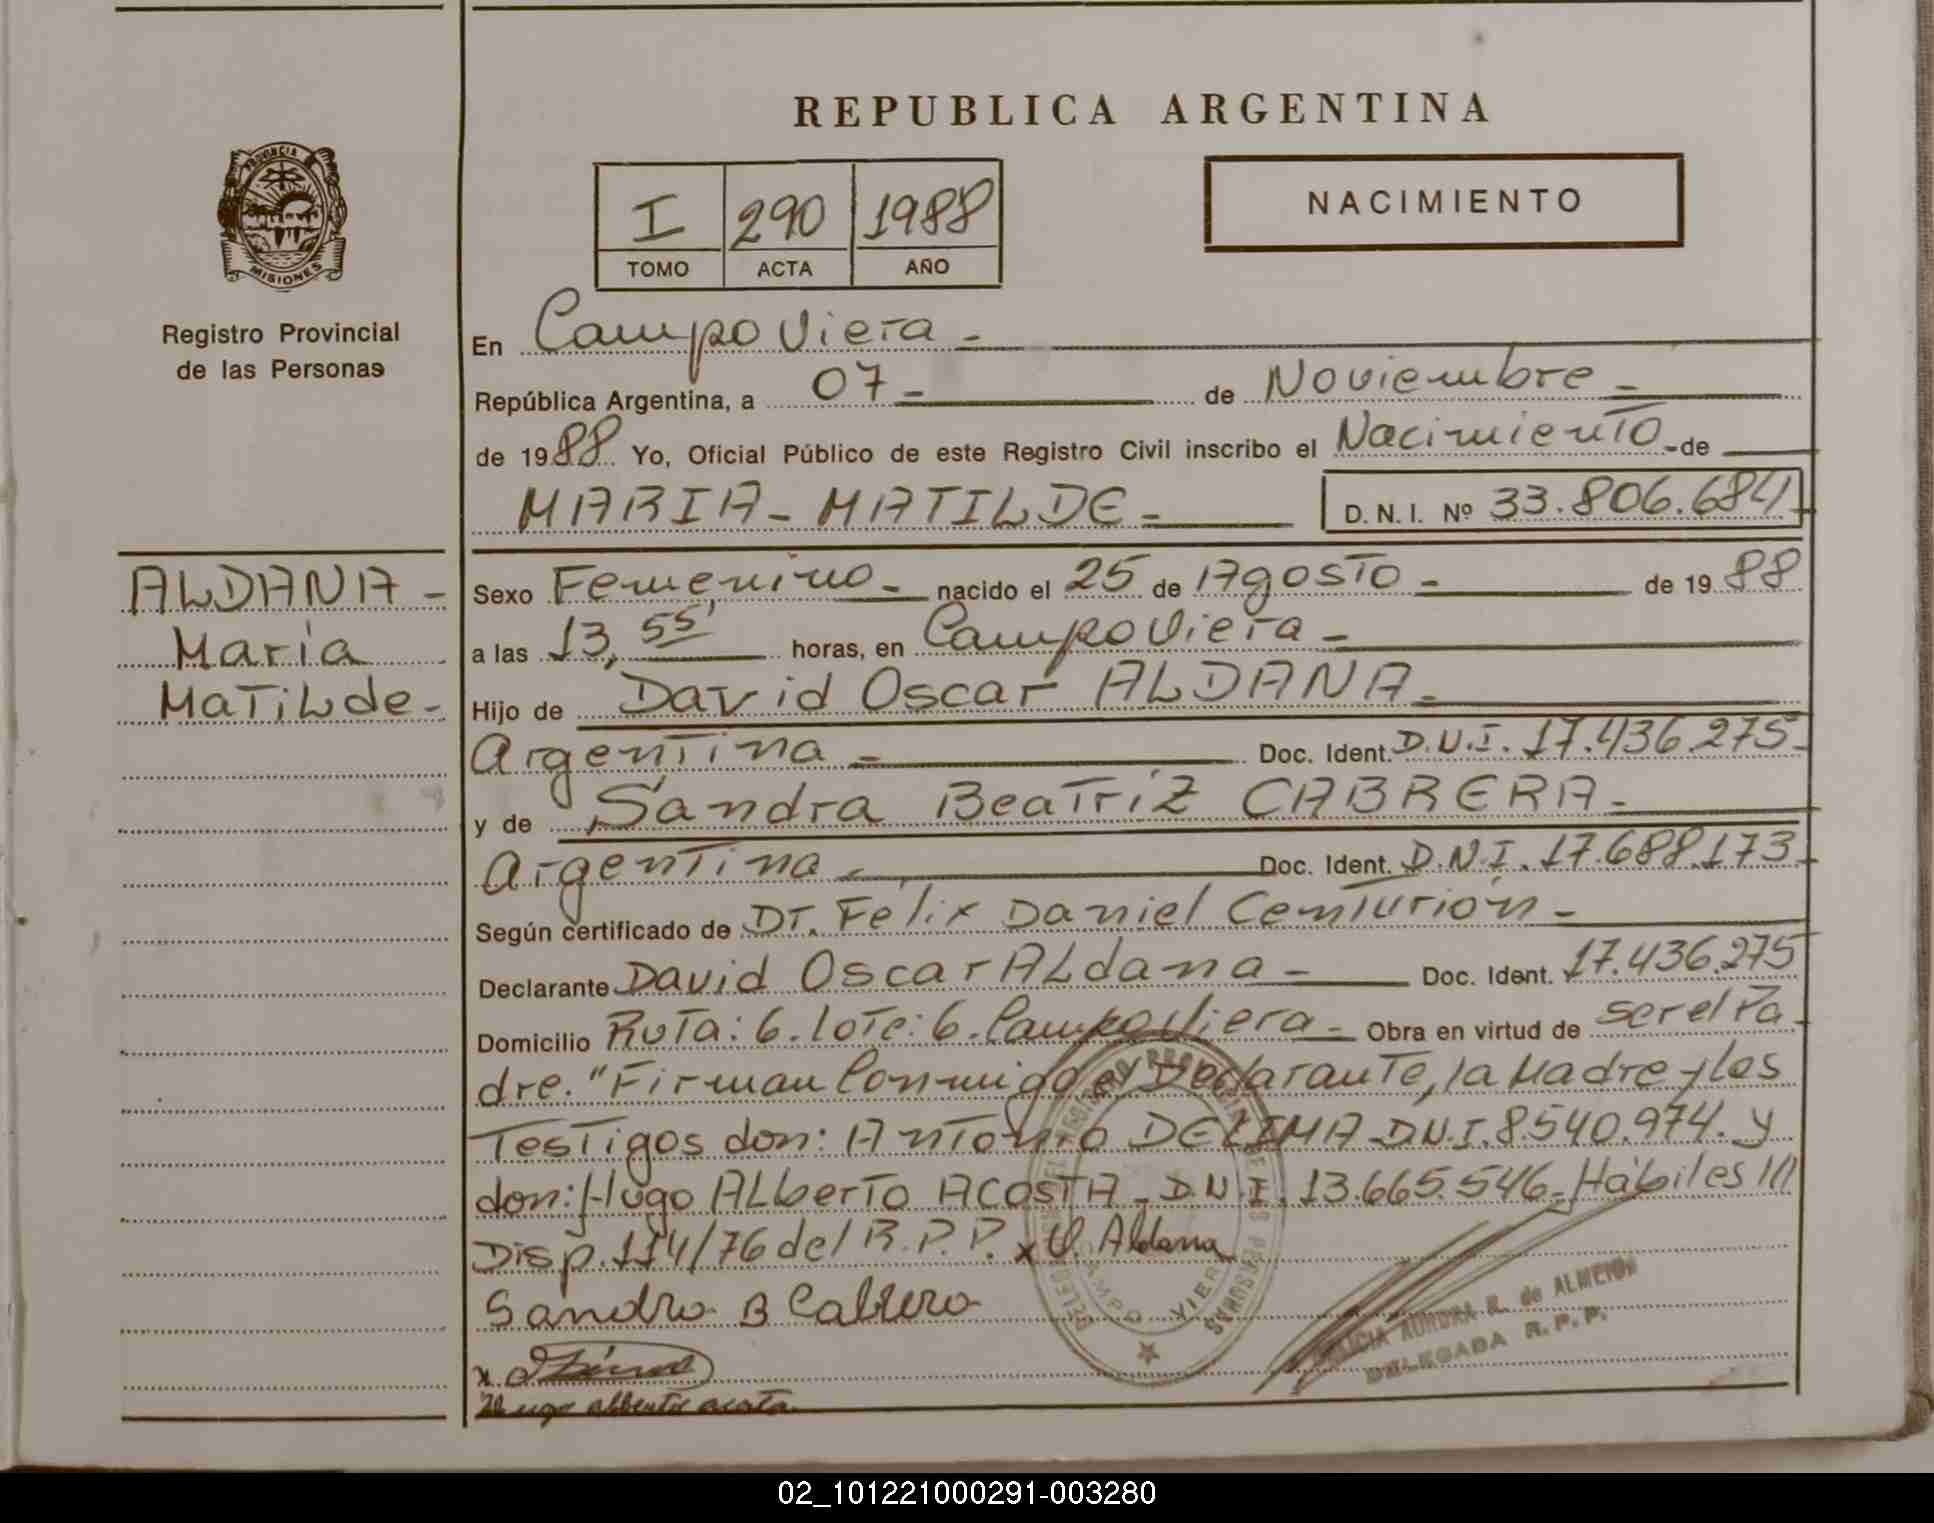 REPUBLICA ARGENTINA
PROVINCIA
MISIONES
Registro Provincial
de las Personas
I 290 1988
TOMO ACTA AÑO
NACIMIENTO
En Campo Viera -
República Argentina, a 07 - de Noviembre -
de 1988 Yo, Oficial Público de este Registro Civil inscribo el Nacimiento - de
MARIA - MATILDE - D. N. I. Nº 33.806.684
ALDANA -
Maria
Matilde -
Sexo Femenino - nacido el 25 de Agosto - de 1988
a las 13,55' horas, en Campo Viera -
Hijo de David Oscar ALDANA -
Argentina - Doc. Ident. D.N.I. 17.436.275-
y de Sandra Beatriz CABRERA -
Argentina - Doc. Ident. D.N.I. 17.688.173-
Según certificado de Dr. Felix Daniel Centurión -
Declarante David Oscar Aldana - Doc. Ident. 17.436.275
Domicilio Ruta: 6. Lote: 6. Campo Viera - Obra en virtud de ser el Pa-
dre. "Firman Conmigo el Declarante, la Madre y los
Testigos don: Antonio DE LIMA D.N.I. 8.540.974. y
don: Hugo Alberto ACOSTA - D.N.I. 13.665.546 - Hábiles ///
Disp. 114/76 del R.P.P. x O. Aldana
Sandra B Cabrera
Hugo Alberto Acosta
CAMPO VIERA
AURORA R. de ALMEIDA
DELEGADA R.P.P.
02_101221000291-003280